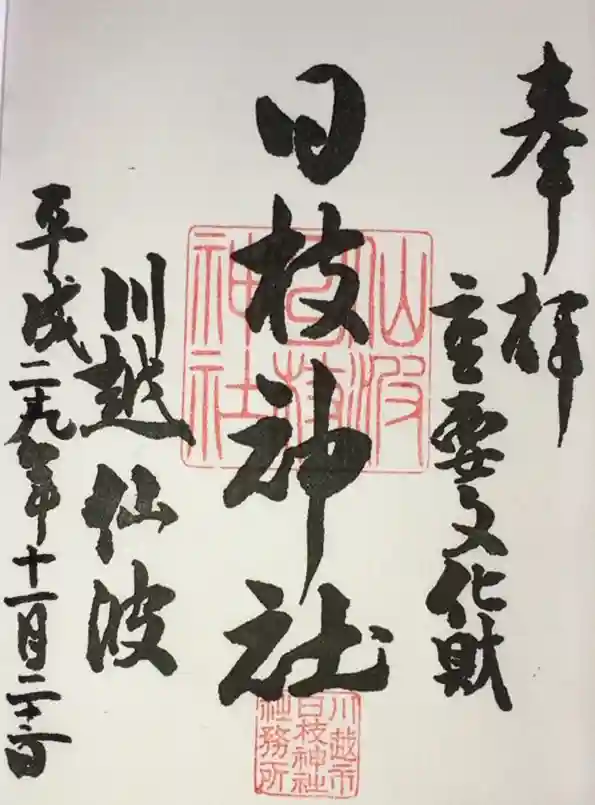 奉拝
重要文化財
日枝神社
川越仙波
平成二十九年十一月二十六日
仙波
日枝
神社
川越市
日枝神社
社務所